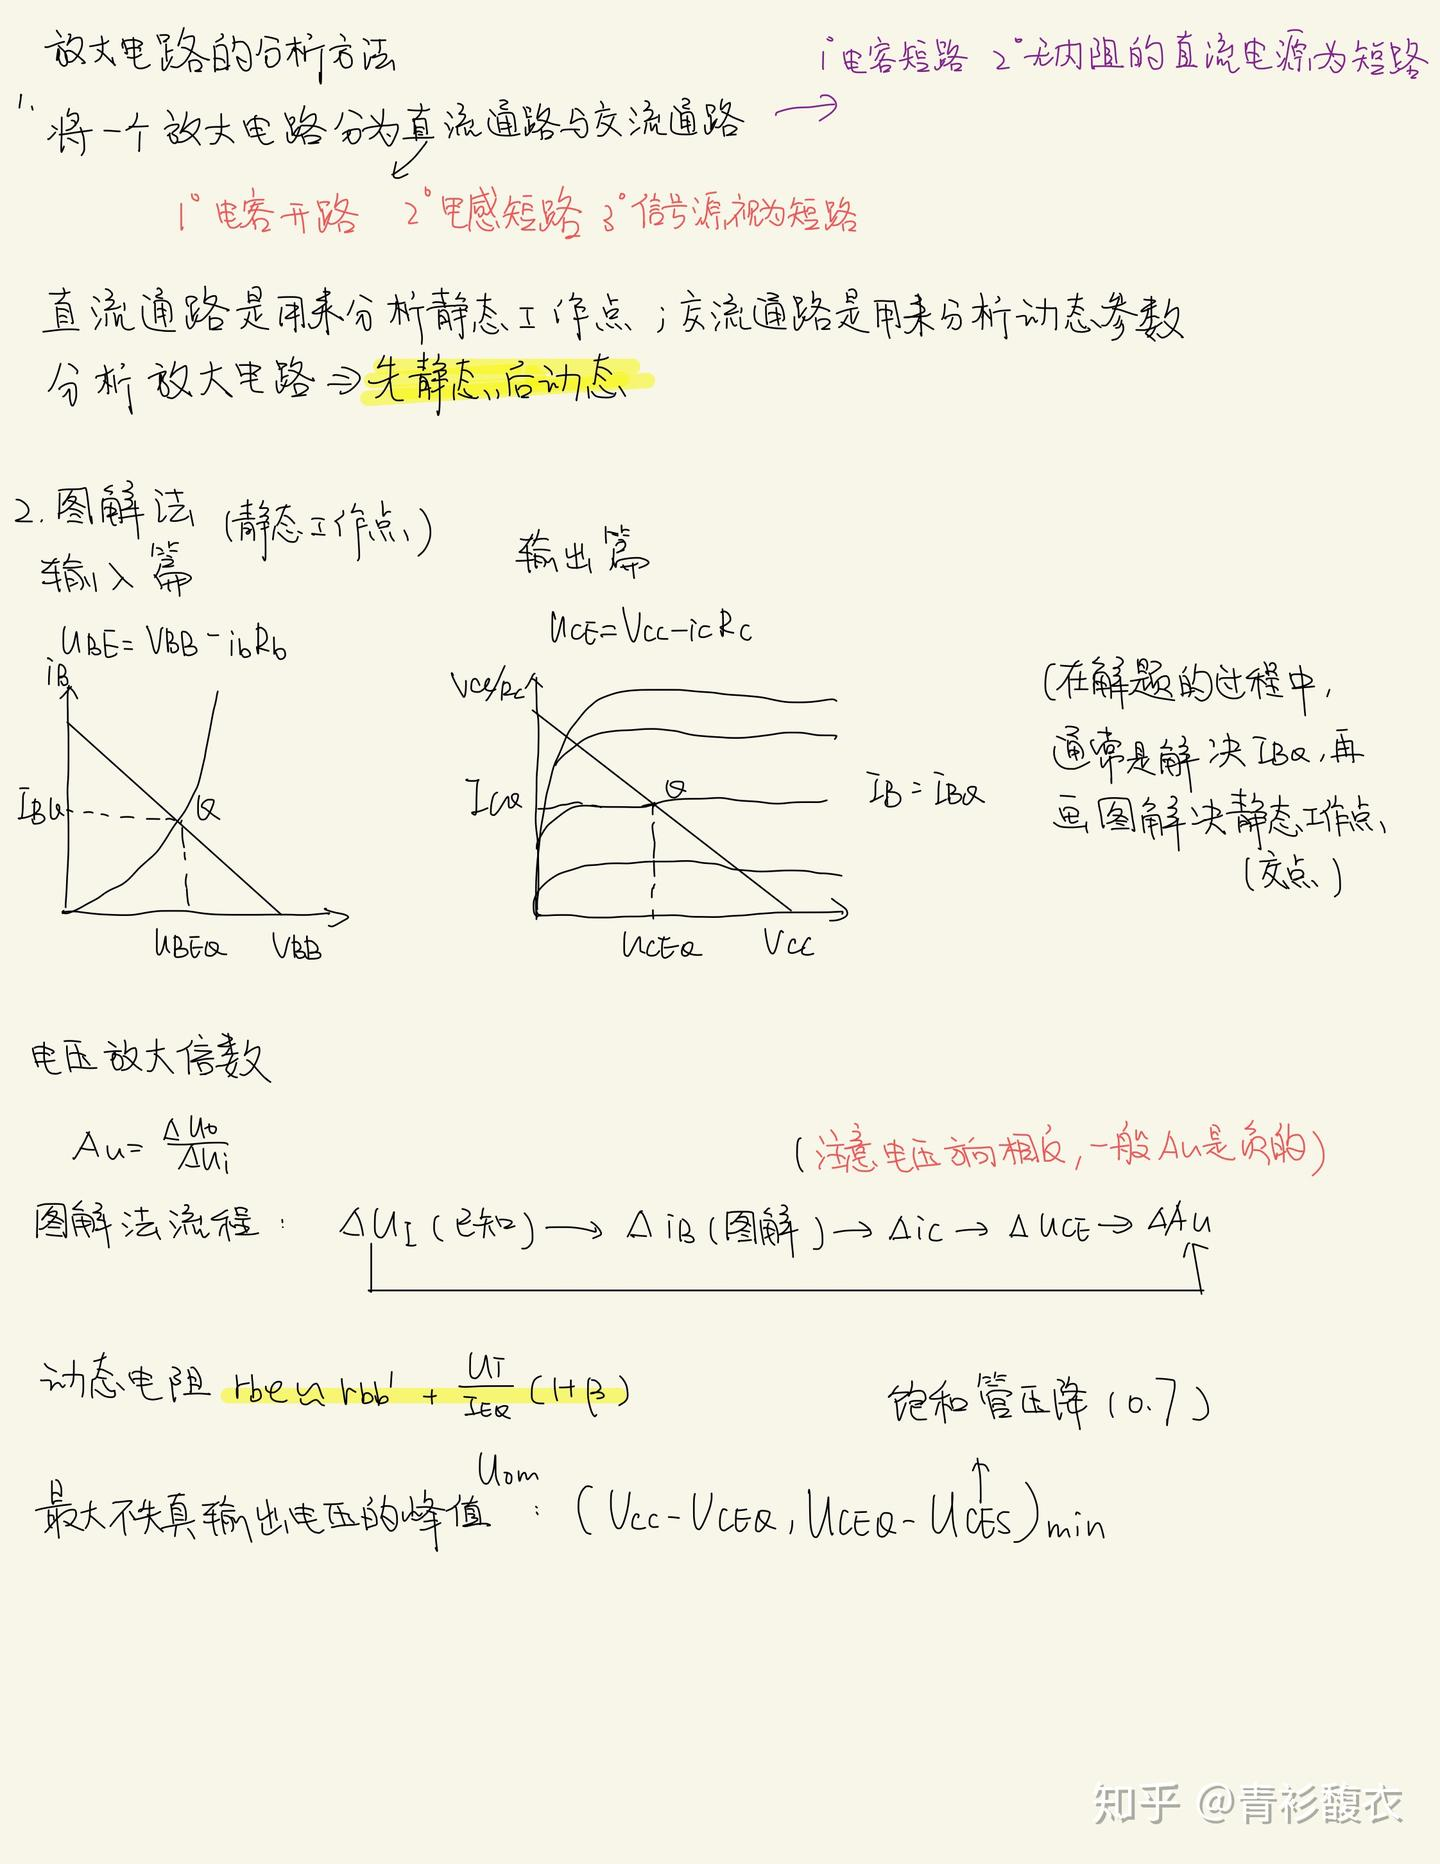 放大电路的分析方法
1° 电容短路 2° 无内阻的直流电源为短路
1. 将一个放大电路分为直流通路与交流通路 →
1° 电容开路 2° 电感短路 3° 信号源视为短路
直流通路是用来分析静态工作点；交流通路是用来分析动态参数
分析放大电路⇒先静态，后动态
2. 图解法 (静态工作点)
输入篇
UBE=VBB-ibRb
iB
IBQ
Q
UBEQ VBB
输出篇
UCE=VCC-icRc
VCC/Rc
ICQ
Q
IB=IBQ
UCEQ VCC
(在解题的过程中，
通常是解决IBQ，再
画图解决静态工作点
(交点)
电压放大倍数
Au=ΔUo/ΔUi
(注意电压方向相反，一般Au是负的)
图解法流程： ΔUI(已知)→ΔiB(图解)→Δic→ΔUCE→ΔAu
动态电阻 rbe≈rbb'+UT/IEQ(1+β)
饱和管压降(0.7)
最大不失真输出电压的峰值Uom：(VCC-VCEQ,UCEQ-UCES)min
知乎 @青衫馥衣